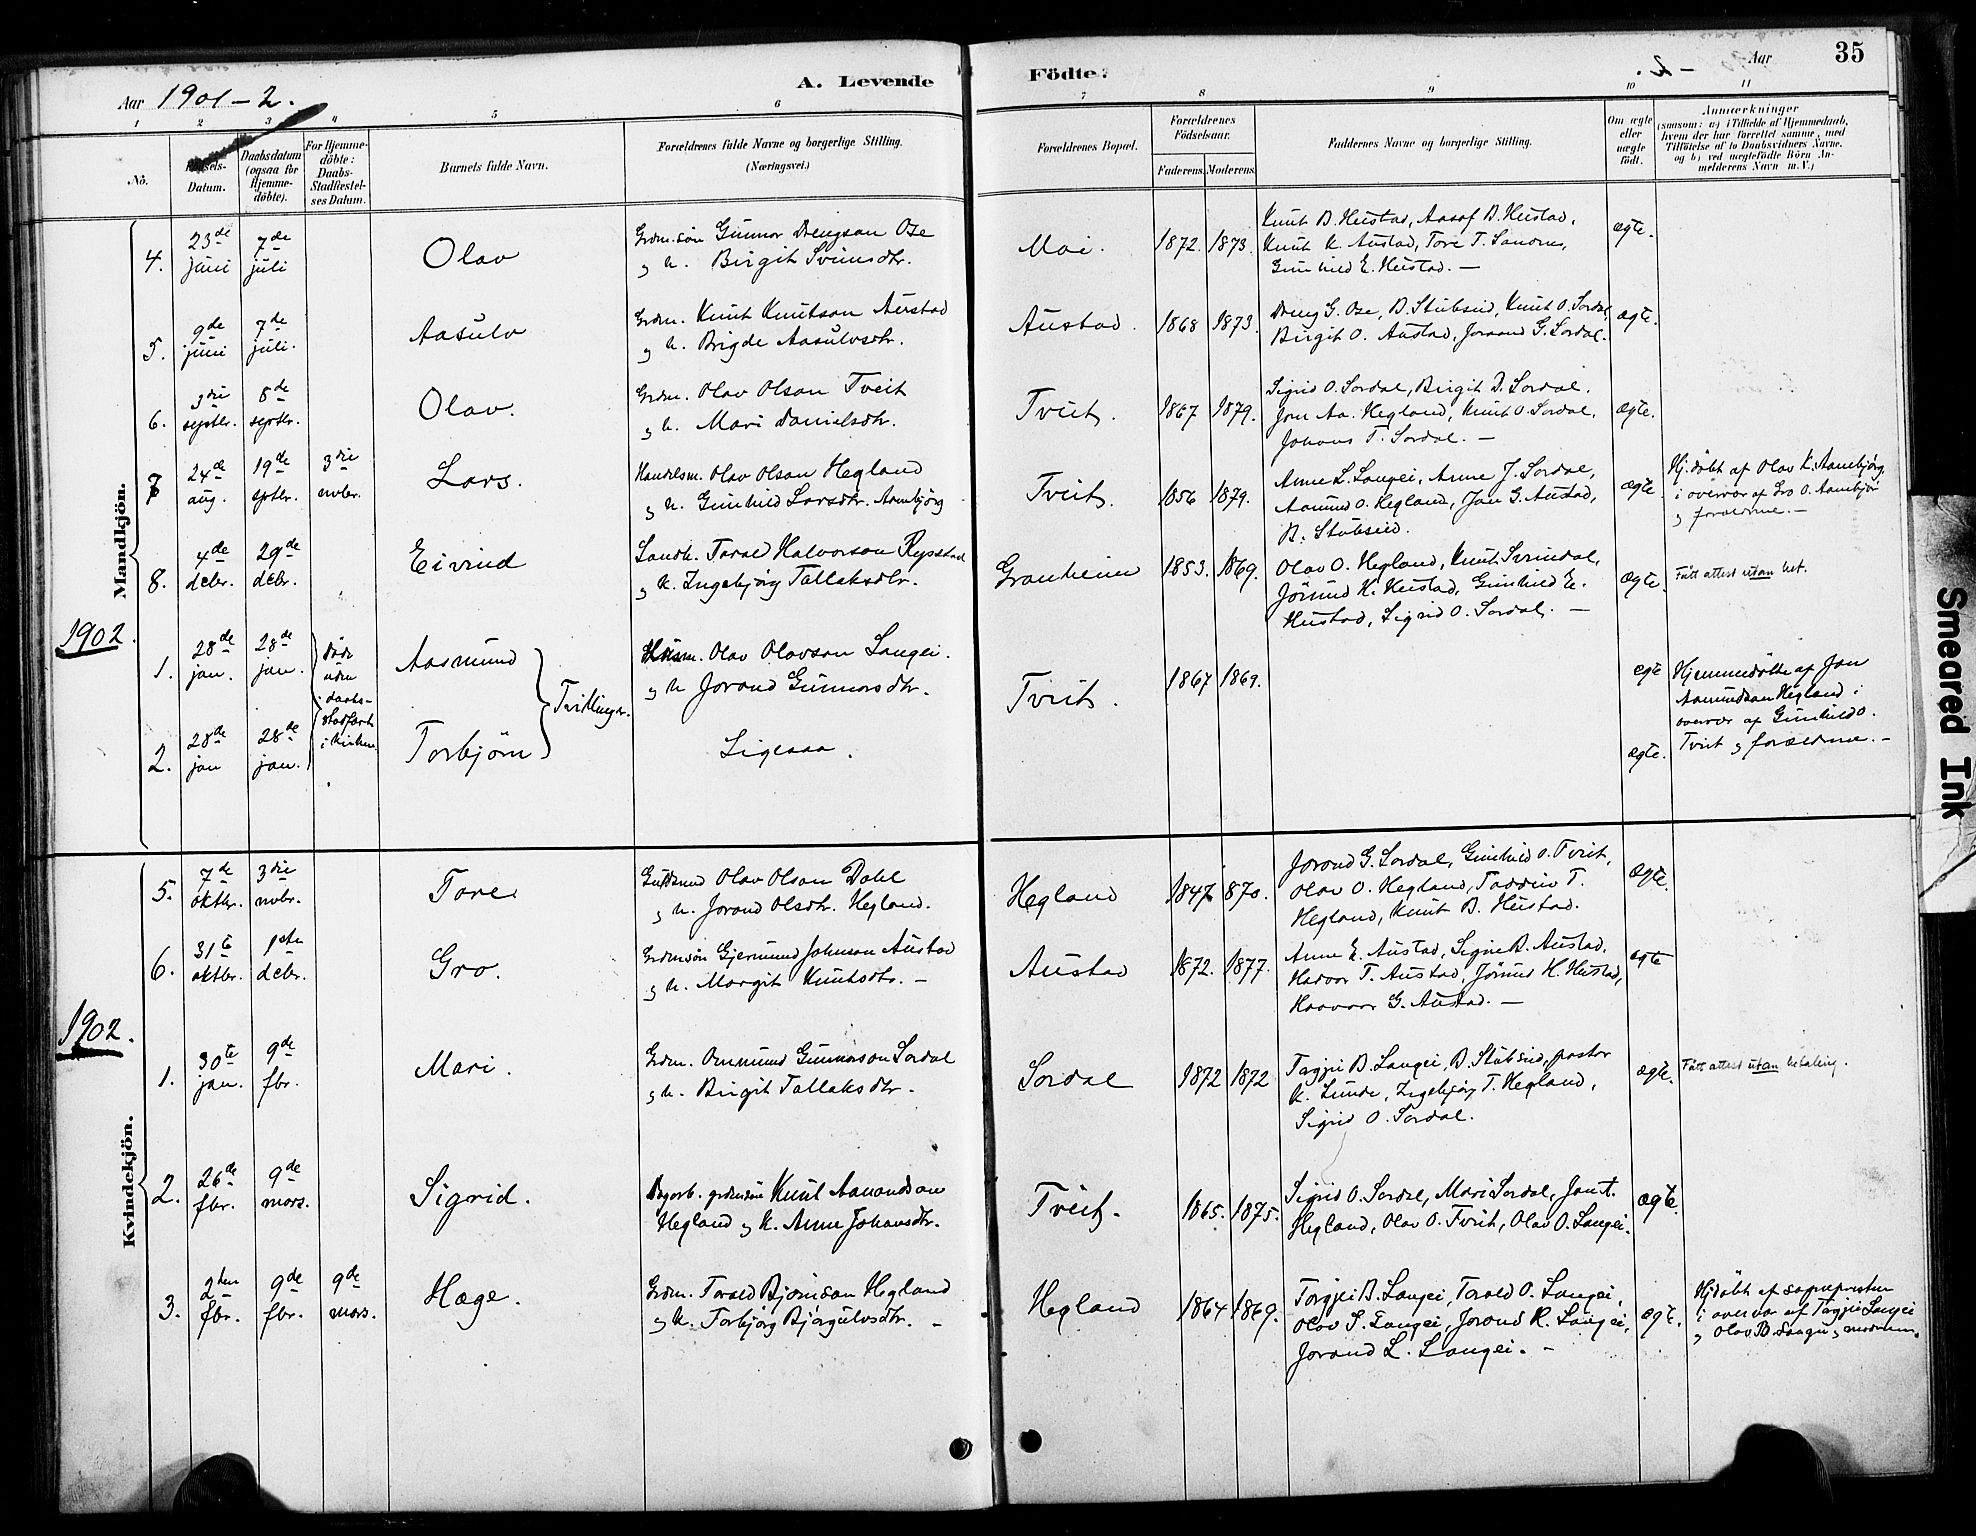 Aar 1901-2.
A. Levende
Födte.
Aar
35
1
2
3
4
5
6
7
8
9
10
11
No.
Datum.
Daabsdatum
(ogsaa for
Hjemme-
döbte).
For Hjemme-
döbte:
Daabs-
Stadfæstel-
ses Datum.
Barnets fulde Navn.
Forældrenes fulde Navne og borgerlige Stilling.
(Næringsvei.)
Forældrenes Bopæl.
Forældrenes
Födselsaar.
Faderens.
Moderens.
Faddernes Navne og borgerlige Stilling.
Om ægte
eller
uægte
födt.
Anmærkninger
(saasom: a) i Tilfælde af Hjemmedaab,
hvem der har forrettet samme, med
Tilföielse af to Daabsvidners Navne.
og b) ved uægtefödte Börn An-
melderens Navn m. V.)
Mandkjön.
4.
23de
juni
7de
juli
Olav
Grdm.sön Gunnar Drengson Ose
og h. Birgit Sveinsdtr.
Moi.
1872.
1873.
Knut B. Heistad, Aasof B. Heistad,
Knut K. Austad, Tore T.
Gunhild E. Heistad. -
ægte.
5.
9de
juni
7de
juli.
Aasulv
Grdm. Knut Knutson Austad
og h. Brigde Aasulvsdtr.
Austad.
1868
1873.
Dreng G. Ose, B. Stubseid, Knut O. Sordal,
Birgit O. Austad, Joraand G. Sordal.
ægte.
6.
3die
septbr.
8de
septbr.
Olav.
Grdm. Olav Olson Tveit
og h. Mari Danielsdtr.
Tveit.
1867
1879.
Sigrid O. Sordal, Birgit D. Sordal.
Jon Aa. Hegland, Knut O. Sordal,
Johans T. Sordal. -
ægte.
7
24de
aug.
19de
sptbr.
3die
novbr.
Lars.
Handelsm. Olav Olson Hegland
og h. Gunhild Larsdtr. Aamebjörg
Tveit.
1856
1879.
Anne L. Langei, Anne J. Sordal,
Aamund O. Hegland, Jon G. Austad,
B. Stubseid.
ægte
Hj.döbt af Olav K. Aamebjörg.
i overvær af Gro O. Aamebjör
og forældrene. -
8.
4de
debr.
29de
debr.
Eivind
Landh. Torald Halvorson Rysstad
og h. Ingebjörg Tallaksdtr.
Granheim
1853.
1869.
Olav O. Hegland, Knut Svindal,
Jörund H. Heistad, Gunhild E.
Heistad, Sigrid O. Sordal. -
ægte.
Fått attest utan bet.
1902.
1.
28de
jan.
28de
jan.
döde
uden
daabs-
stadfæst.
i kirken
Aasmund
Tvillinger.
Husm. Olav Olavson Langei.
og h Jorand Gunnarsdtr.
Tveit.
1867
1869.
ægte
Hjemmedöbte af Jon
Aamundson Hegland i
overvær af Gunhild O.
Tveit og forældrene. -
2.
28de
jan
28de
jan.
Torbjörn
Ligesaa.
ægte.
Kvindekjön.
5.
7de
oktbr.
3die
novbr.
Tore
Olav Olson Dahl
og h. Jorand Olsdtr. Hegland.
Hegland
1847
1870.
Jorand G. Sordal, Gunhild O. Tveit,
Olav O. Hegland, Taddeiv T.
Hegland, Knut B. Heistad.
ægte.
6.
31te
oktbr.
1ste
debr.
Gro.
Grdmsön Gjermund Johnson Austad
og h. Margit Knutsdtr. -
Austad
1872.
1877.
Anne E. Austad, Signe B. Austad,
Halvor T. Austad, Jörund H. Heistad,
Haavor G. Austad. -
ægte
1902.
1.
30te
jan.
9de
fbr.
Mari.
Grdm. Ommund Gunnarson Sordal
og h. Birgit Tallaksdtr.
Sordal
1872
1872
Torgjei B. Langei, B. Stubseid, pastor
K. Lunde, Ingebjörg T. Hegland,
Sigrid O. Sordal.
ægte.
Fått attest utan betaling.
2.
26de
fbr.
9de
mars.
Sigrid.
Dagarb. grdmsön Knut Aamundson
Hegland og h. Anne Johansdtr.
Tveit.
1865.
1875.
Sigrid O. Sordal, Mari Sordal, Jon A.
Hegland, Olav O. Tveit, Olav O. Langei.
ægte.
3.
2den
fbr.
9de
fbr.
9de
mars.
Hæge.
Grdm. Torald Björnson Hegland
og h. Torbjörg Björgulvsdtr. -
Hegland
1864
1869.
Torgjei B. Langei, Torald O. Langei,
Olav S. Langei, Jorand R. Langei,
Jorand L. Langei. -
ægte.
Hjdöbt af sognepresten
i overvær af Torgjei Langei
og Olav B. Langei og moderen.
Smeared Ink